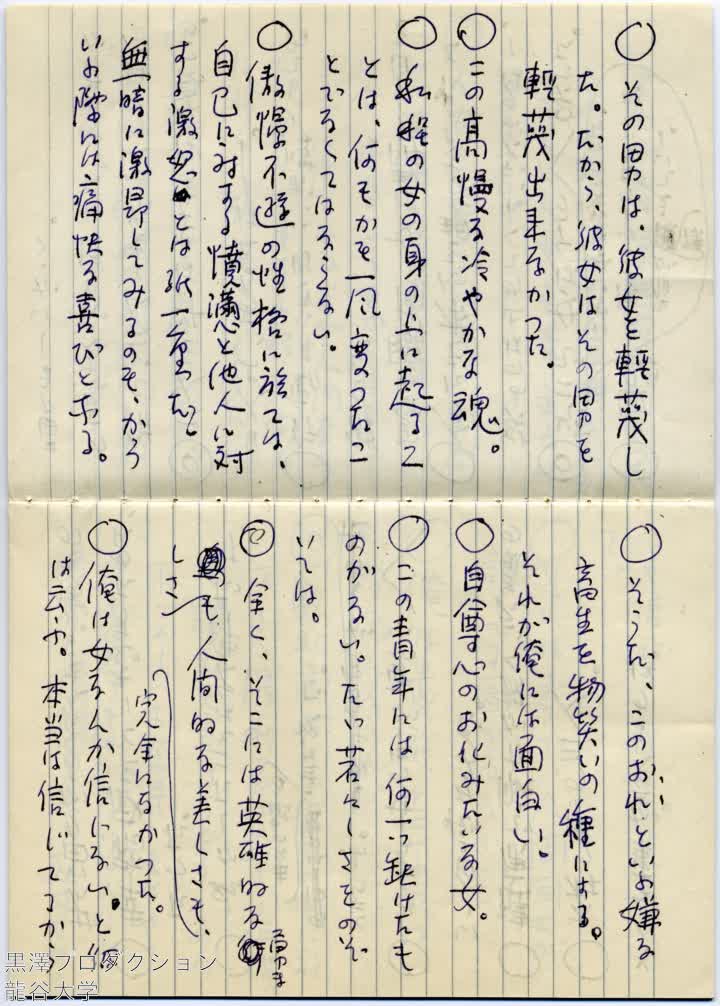 ○ その男は、彼女を軽蔑し
た。だから、彼女はその男を
軽蔑出来なかった。
○ この高慢な冷やかな魂。
○ 私程の女の身の上に起るこ
とは、何もかも一風変ったこ
とでなくてはならない。
○ 傲慢不遜の性格に於ては、
自己に対する憤懣と他人に対
する激怒とは紙一重だ。
無暗に激昂してみるのも、かう
いふ際には痛快な喜びとなる。
○ そうだ、このおれといふ嫌な
畜生を物笑いの種にする。
それが俺には面白い。
○ 自尊心のお化みたいな女。
○ この青年には何一つ缺けたも
のがない。たゞ若々しさをのぞ
いては。
○ 全く、そこには英雄的な
高貴
しさも、人間的な美しさも、
完全になかった。
○ 俺は女なんか信じない。と
は云ふ。本当は信じてるから
黒澤プロダクション
龍谷大学